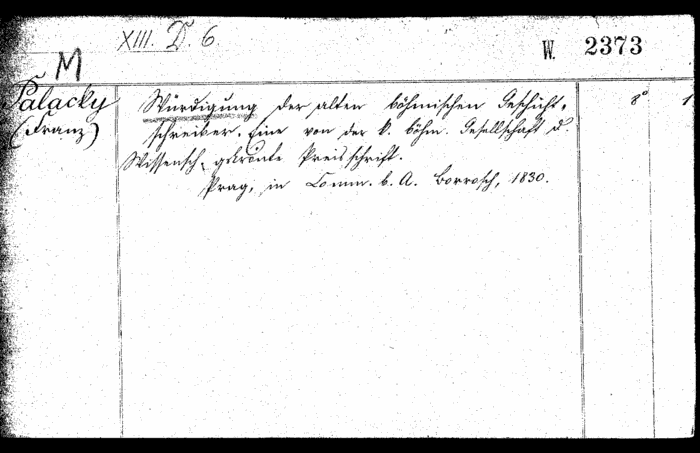 XIII. D. 6.
W. 2373
M
Palacky
(Franz)
Würdigung der alten böhmischen Geschicht-
schreiber. Eine von der k. böhm. Gesellschaft d.
Wissensch. gekrönte Preisschrift.
Prag, in Comm. b. A. Borrosch, 1830.
8°
1